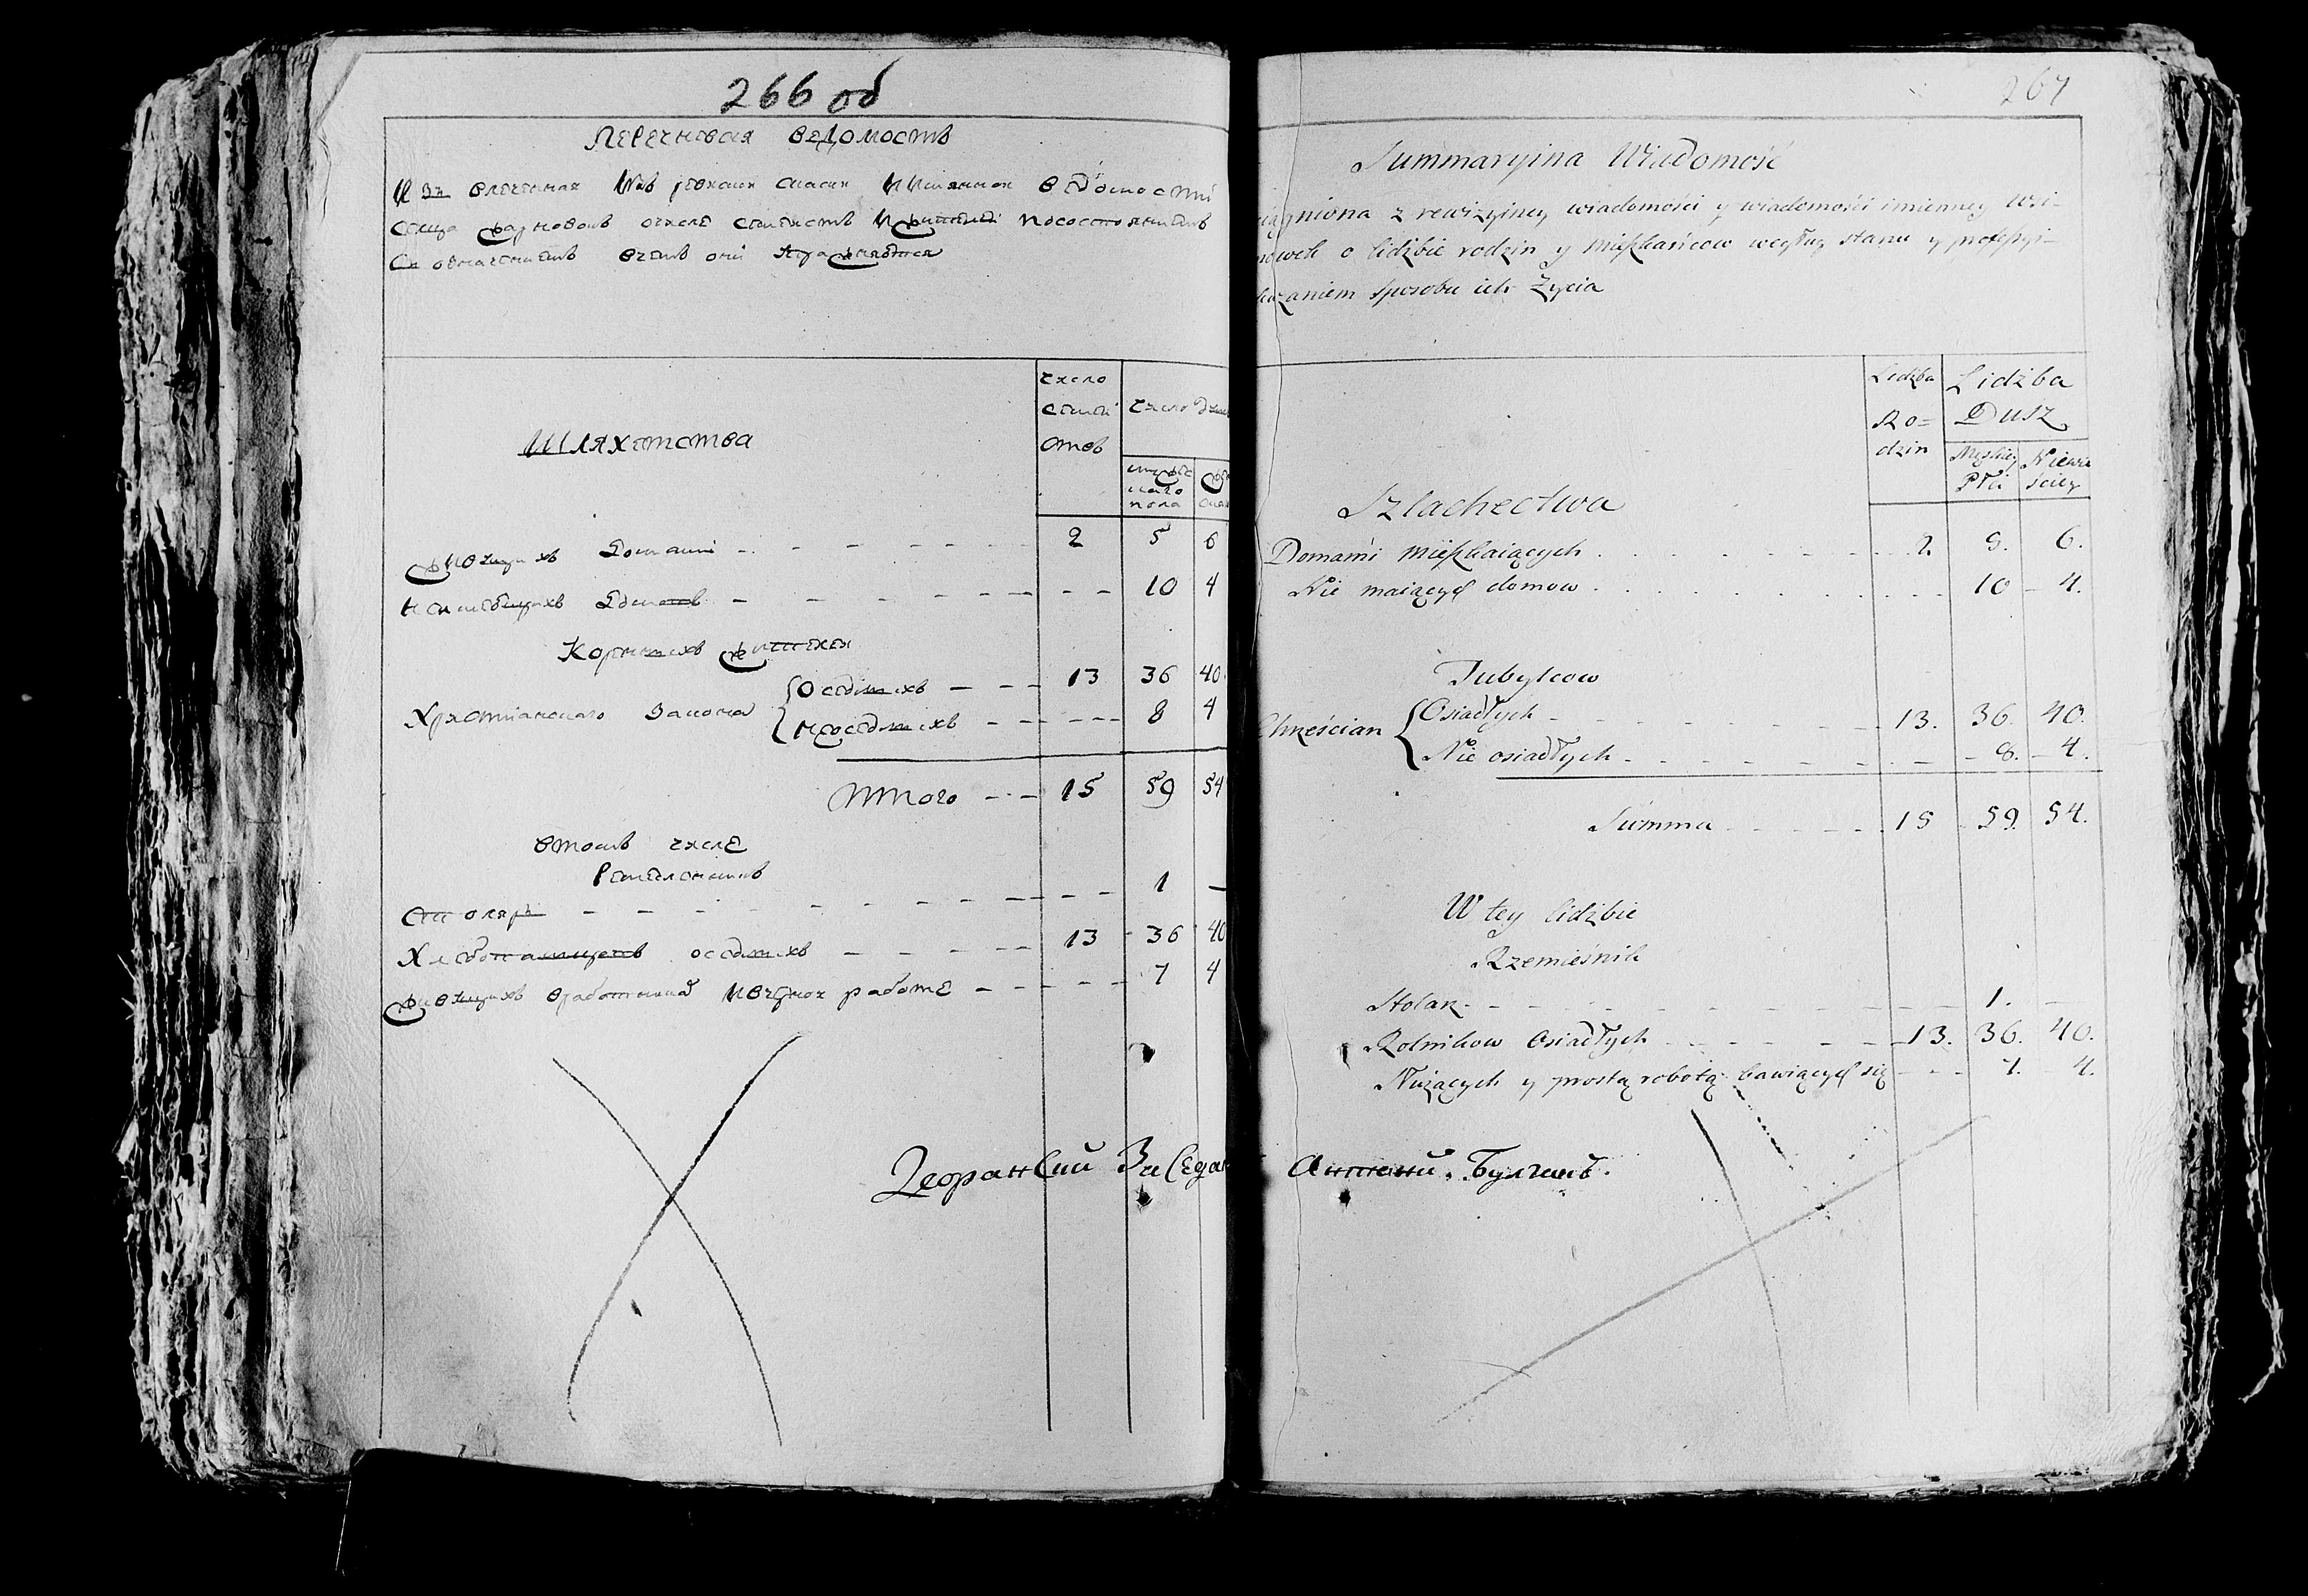 266 об
Перечневая ведомость
Изъ
села Жарновокъ о числе семействъ и жителей по состояниемъ
Шляхетства
число
семей
ствъ
число душ
мужес
каго
пола
живущихъ домами 2 5 6
неимеющихъ домовъ 10 4
Коренныхъ жителей
Христианскаго закона
оседлыхъ 13 36 40
неоседлыхъ 8 4
Итого 15 59 54
втомъ числе
Ремесленниковъ
столяръ 1 —
Хлебопашцовъ оседлыхъ 13 36 40
живущихъ вработниках и вчерной работе 7 4
Антоний Булгакъ.
267
Summaryina Wiadomość
z rewizyiney wiadomosci y wiadomości imienney wsi
o lidżbie rodzin y mieszkańcow według stanu y professyi
sposobu ich Życia
Lidżba
Ro=
dzin
Lidżba
Dusz
Męskiey
Płci
Niewie
ściey
Szlachectwa
Domami mieszkaiących 2 5. 6.
Nie maiących domow 10 4.
Tubylcow
Chrześcian
Osiadłych 13. 36. 40.
Nie osiadłych 8. 4.
Summa 15 59. 54.
W tey lidżbie
Rzemieśnik
Stolarz 1. —
Rolnikow Osiadłych 13. 36. 40.
Służących y prostą robotą bawiących się 7. 4.